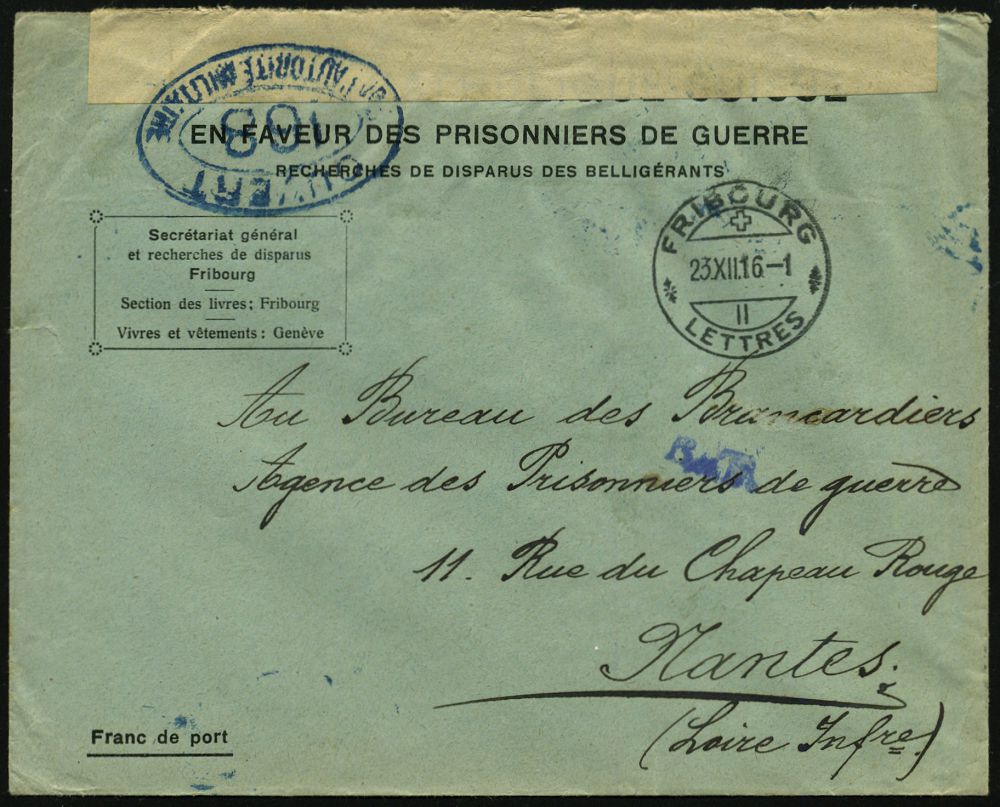 OUVERT
PAR L'AUTORITÉ MILITAIRE
103
SUISSE
EN FAVEUR DES PRISONNIERS DE GUERRE
RECHERCHES DE DISPARUS DES BELLIGÉRANTS
FRIBOURG
23.XII.16.–1
II
LETTRES
Secrétariat général
et recherches de disparus
Fribourg
Section des livres; Fribourg
Vivres et vêtements: Genève
Au Bureau des Brancardiers
Agence des Prisonniers de guerre
11. Rue du Chapeau Rouge
Nantes.
(Loire Infre)
Franc de port